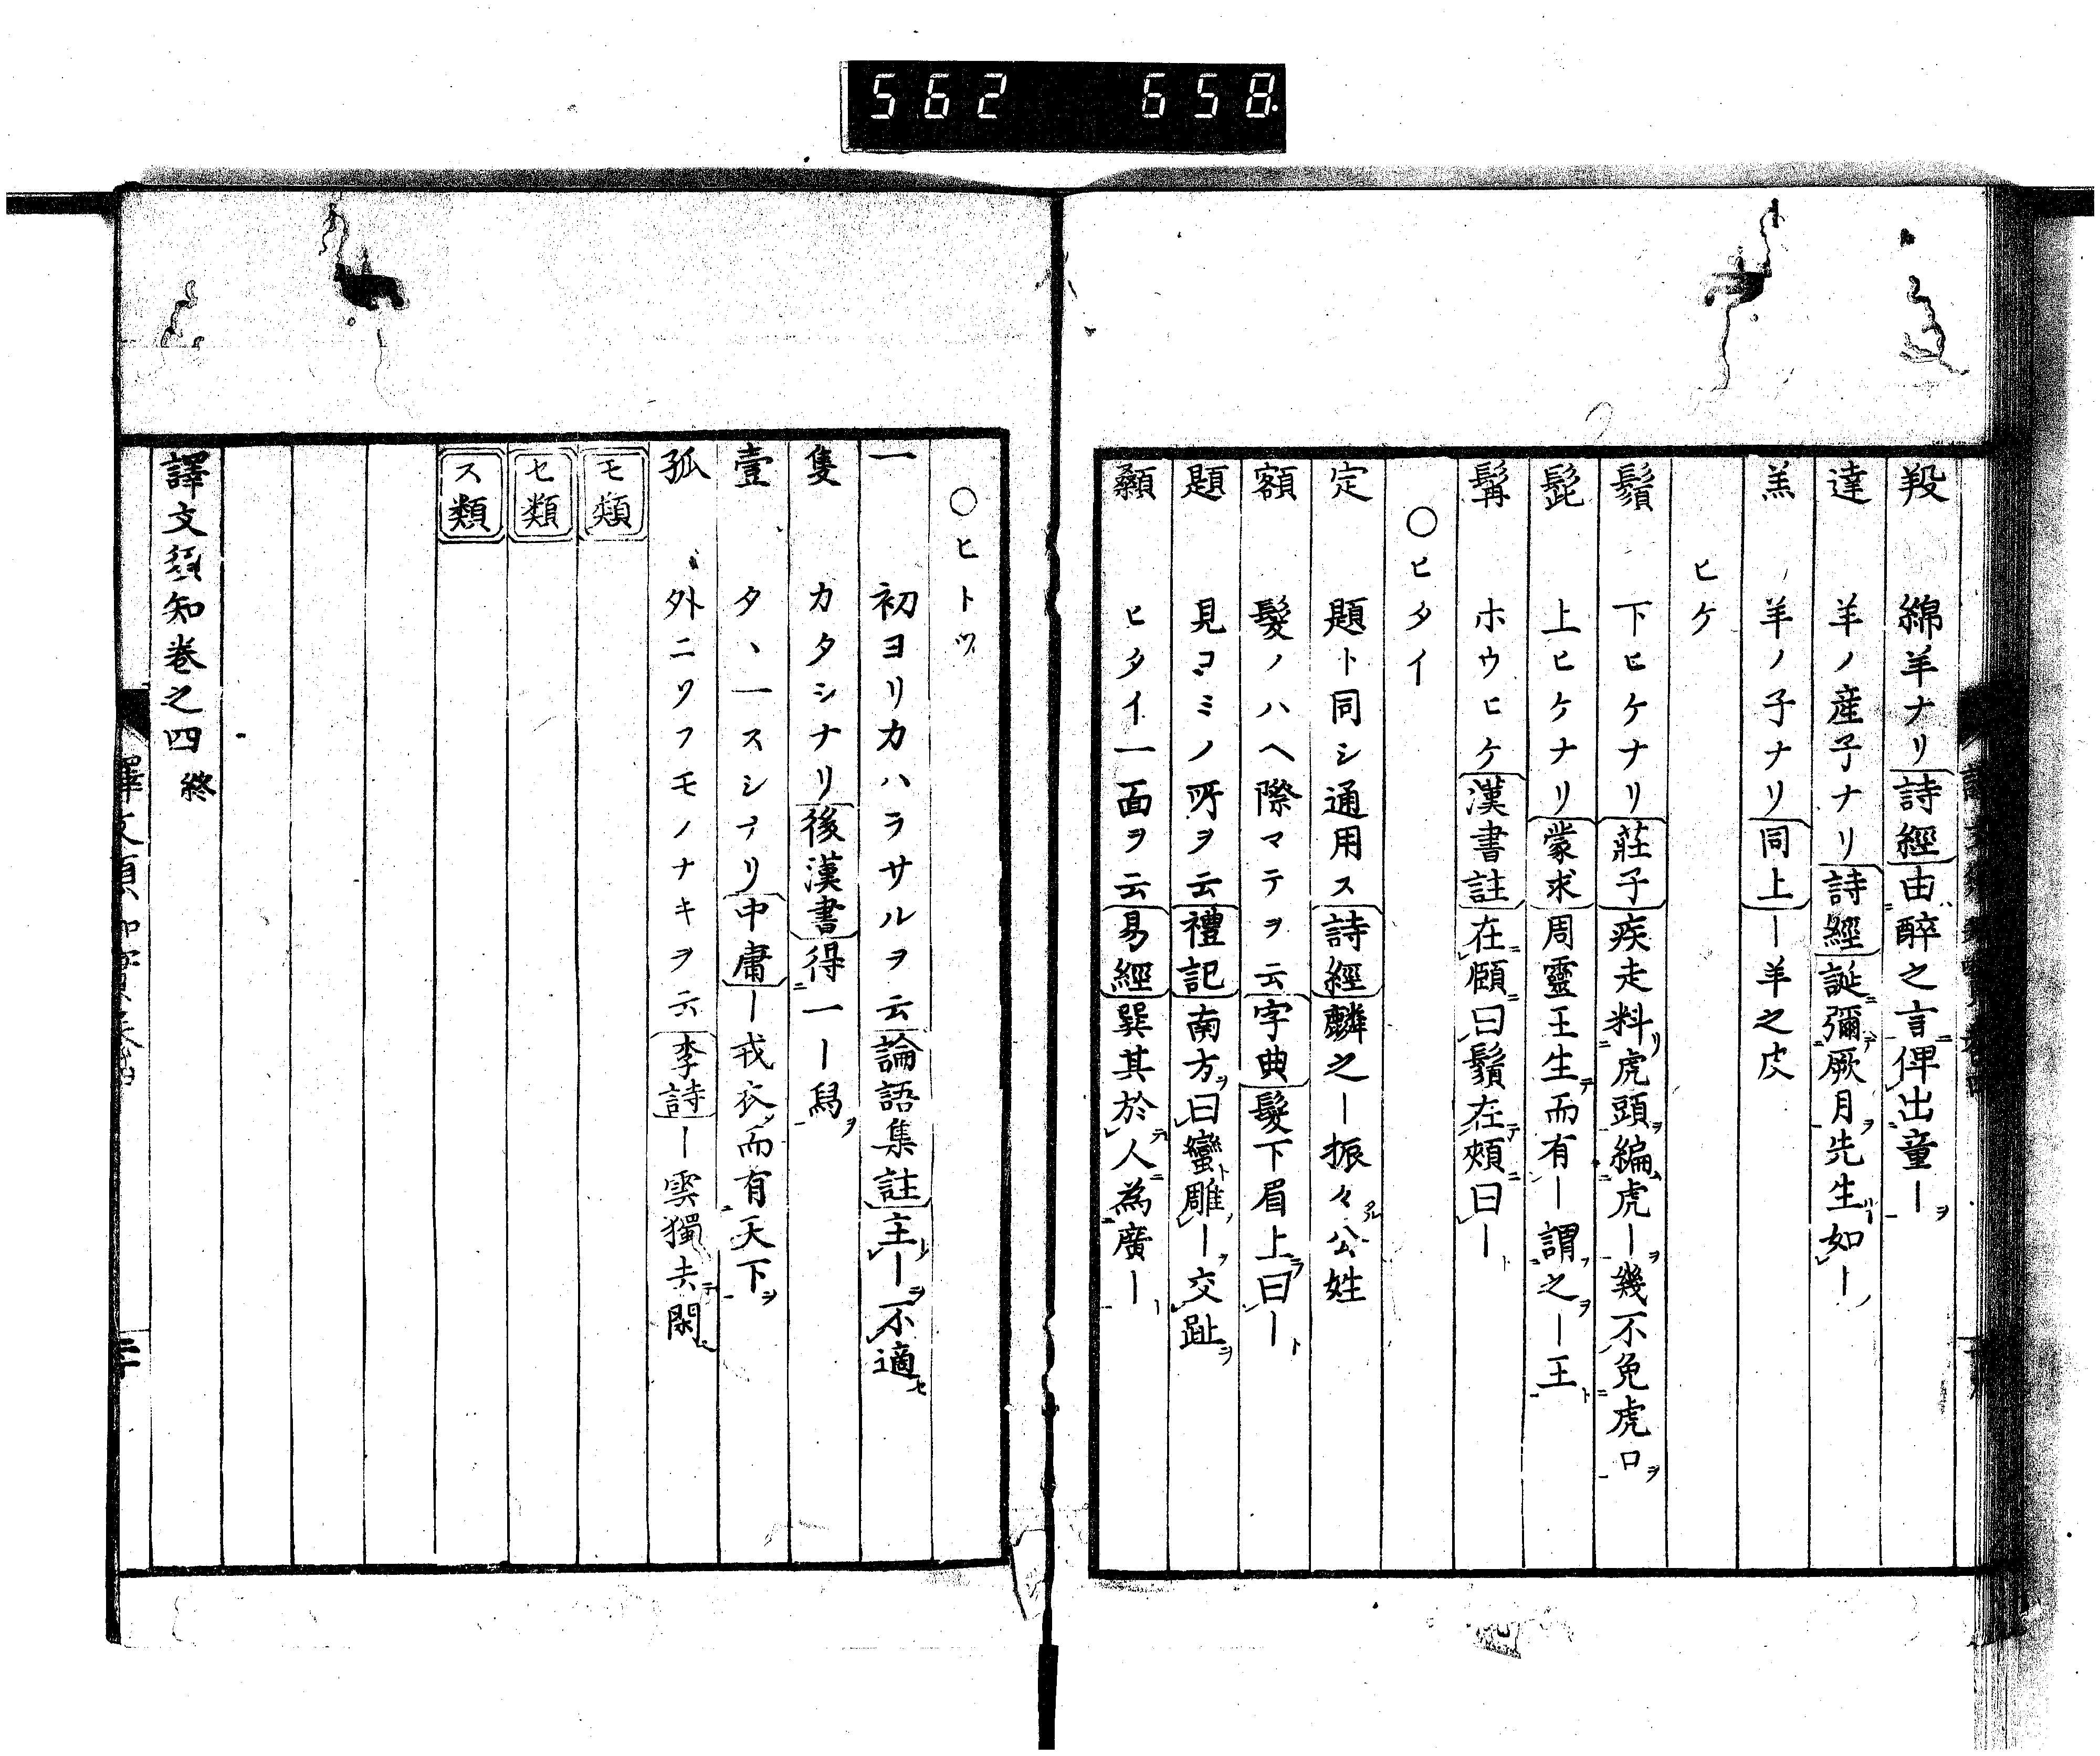 562 658
羖 綿羊ナリ詩經由醉之言俾出童｜
達 羊ノ産子ナリ詩經誕彌厥月先生如｜
羔 羊ノ子ナリ同上｜羊之皮
ヒケ
鬚 下ヒケナリ莊子疾走料虎頭編虎｜幾不免虎口
髭 上ヒケナリ蒙求周靈王生而有｜謂之｜王
髯 ホウヒケ漢書註在頤曰鬚在頰曰｜
○ヒタイ
定 題ト同シ通用ス詩經麟之｜振々公姓
額 髮ノハヘ際マテヲ云字典髮下眉上曰｜
題 見コミノ所ヲ云禮記南方曰蠻雕｜交趾
顙 ヒタイ一面ヲ云易經巽其於人為廣｜
○ヒトツ
一 初ヨリカハラサルヲ云論語集註主｜不適
隻 カタシナリ後漢書得一｜舄
壹 タヽ一スシナリ中庸｜戎衣而有天下
孤 外ニソフモノナキヲ云李詩｜雲獨去閑
モ類
セ類
ス類
譯文須知卷之四 終